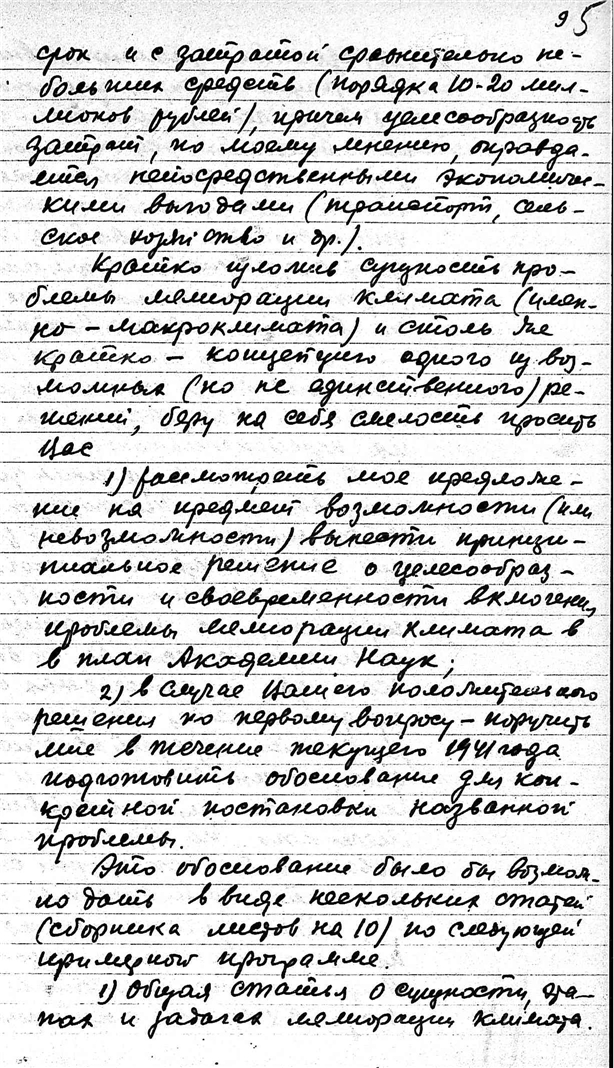 95
срок и с затратой сравнительно не-
больших средств (порядка 10-20 мил-
лионов рублей), причем целесообразность
затрат, по моему мнению, оправда-
ется непосредственными экономичес-
кими выгодами (транспорт, сель-
ское хозяйство и др.).
Кратко изложив сущность про-
блемы мелиорации климата (имен-
но - макроклимата) и столь же
кратко - концепцию одного из воз-
можных (но не единственного) ре-
шений, беру на себя смелость просить
Вас
1) рассмотреть мое предложе-
ние на предмет возможности (или
невозможности) вынести принци-
пиальное решение о целесообраз-
ности и своевременности включения
проблемы мелиорации климата в
в план Академии Наук;
2) в случае Вашего положительного
решения по первому вопросу - поручить
мне в течение текущего 1941 года
подготовить обоснование для кон-
кретной постановки названной
проблемы.
Это обоснование было бы возмож-
но дать в виде нескольких статей
(сборника листов на 10) по следующей
примерной программе.
1) Общая статья о сущности, эта-
пах и задачах мелиорации климата.